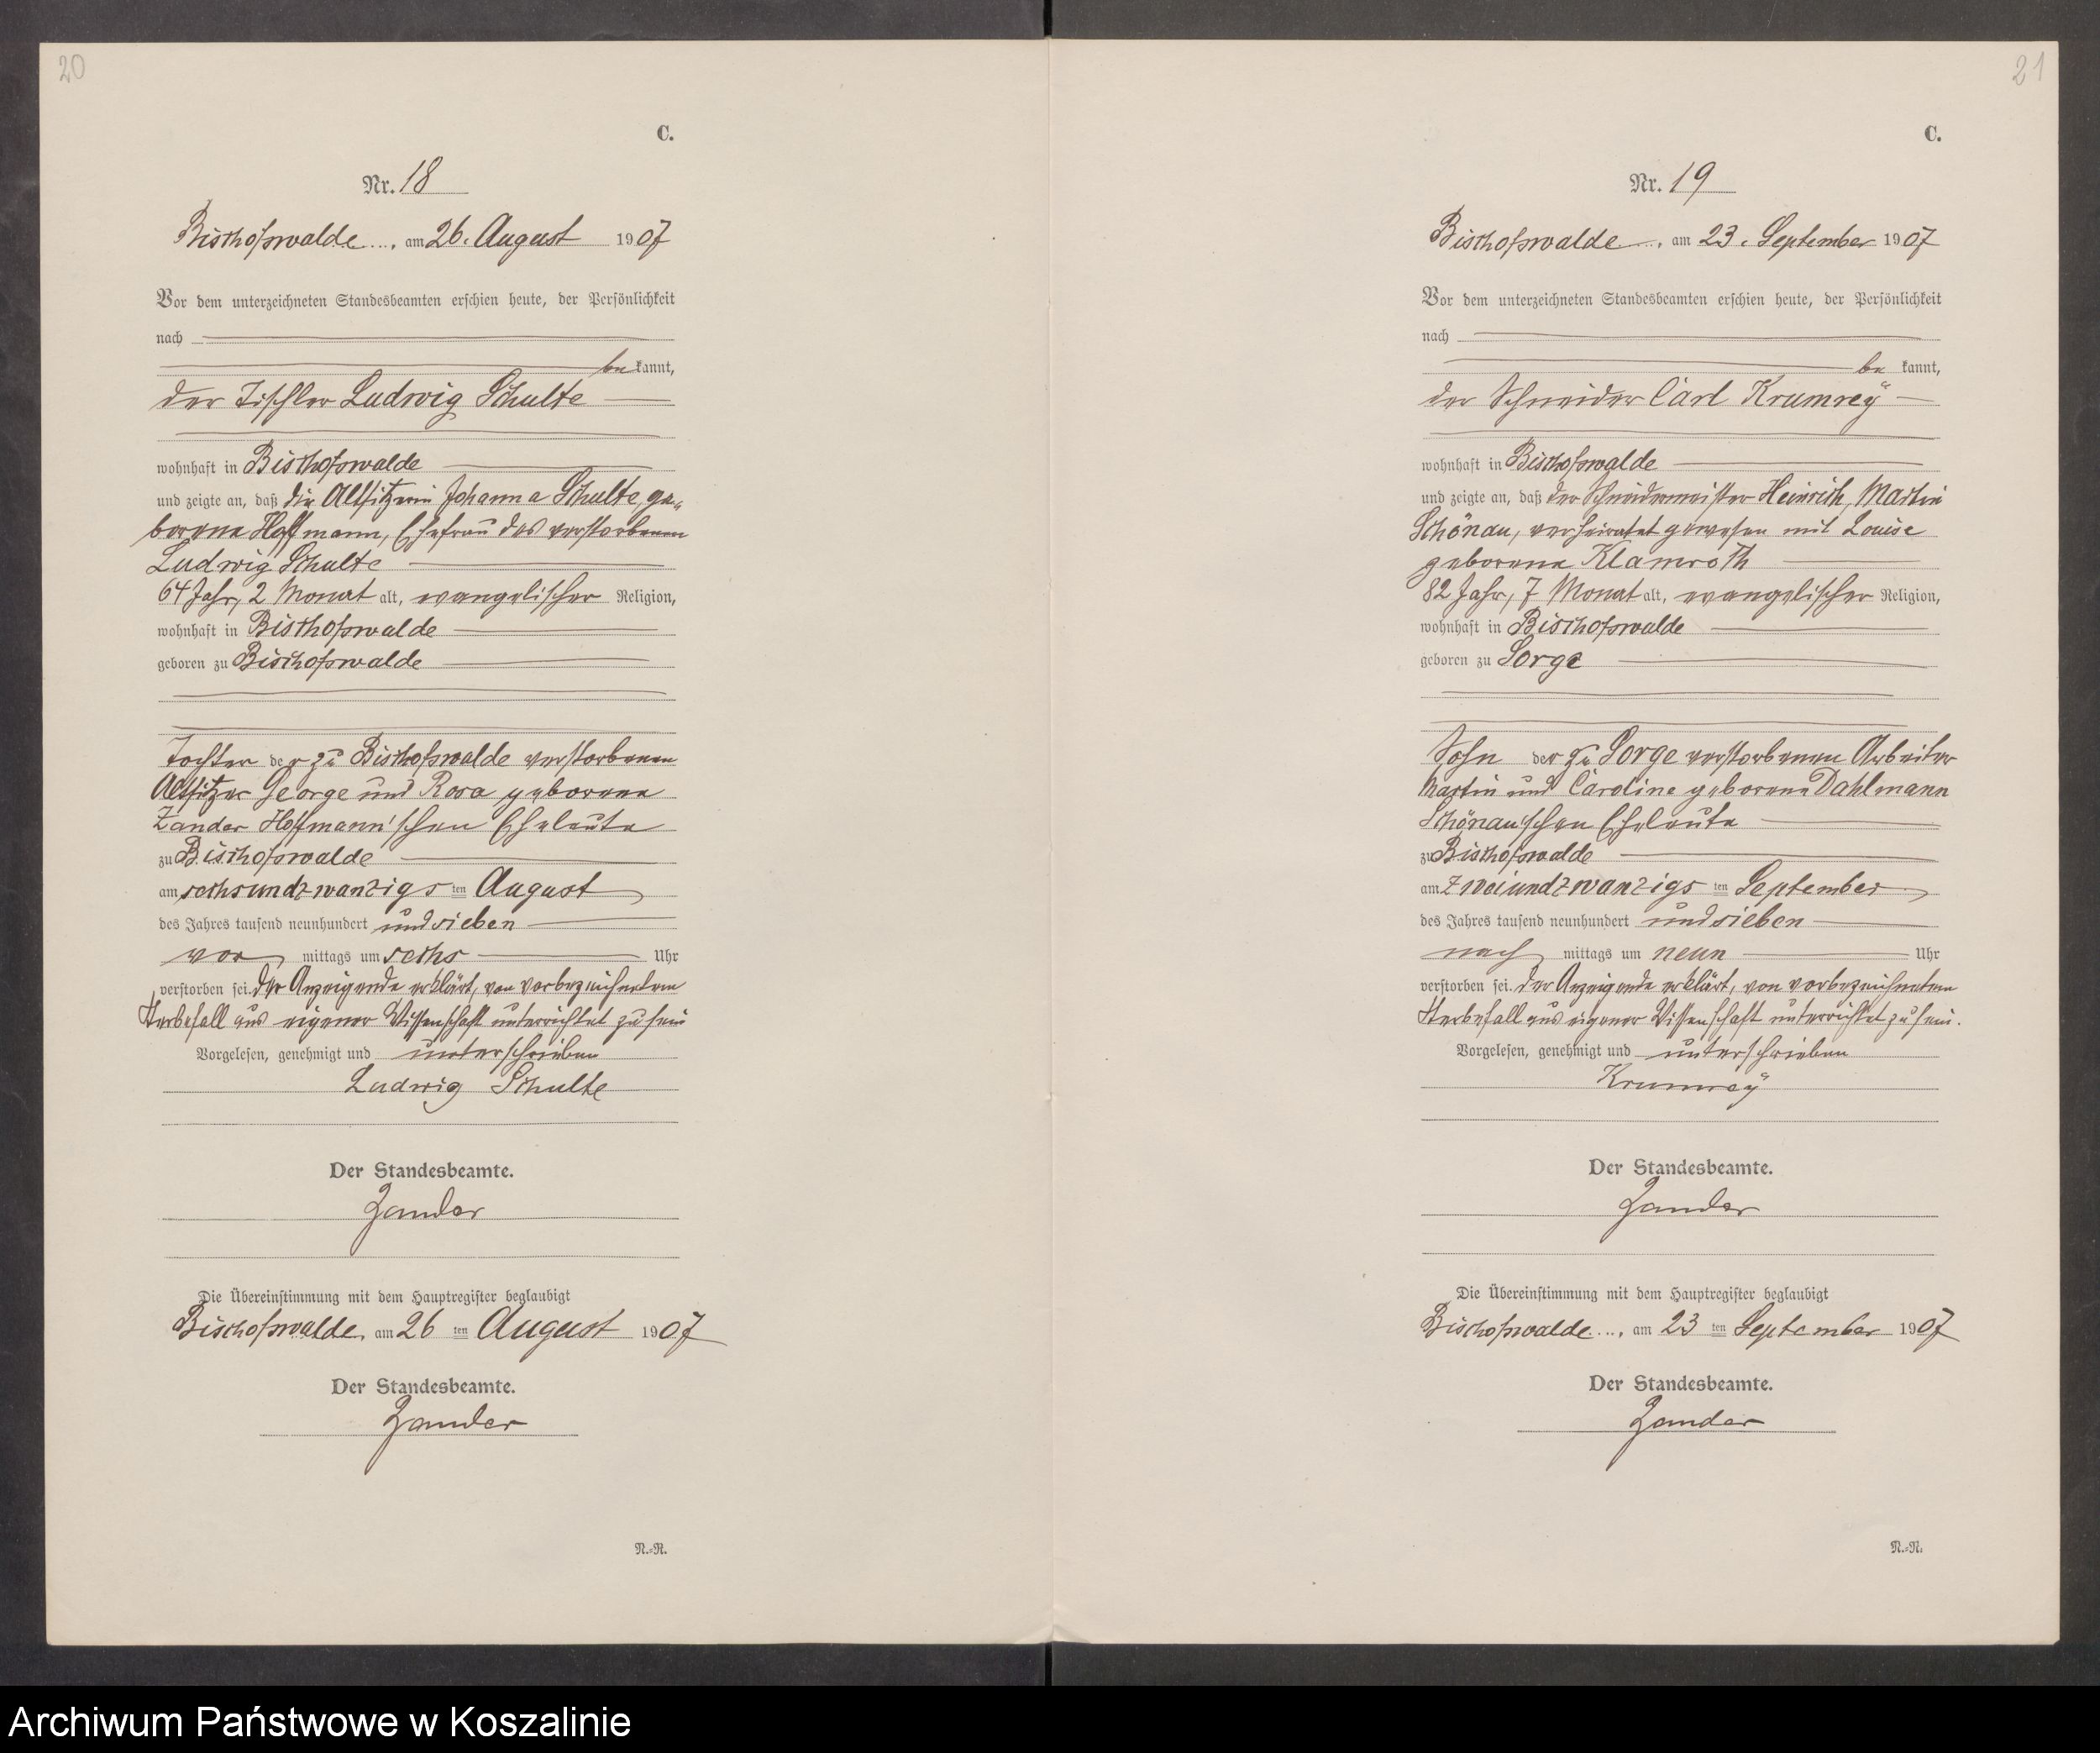 20
C.
Nr. 18
Bischofswalde, am 26. August 1907
Vor dem unterzeichneten Standesbeamten erschien heute, der Persönlichkeit
nach
be kannt,
der Tischler Ludwig Schulte
wohnhaft in Bischofswalde
und zeigte an, daß die Altsitzerin Johanna Schulte, ge-
borene Hoffmann, Ehefrau des verstorbenen
Ludwig Schulte
64 Jahr, 2 Monat alt, evangelischer Religion,
wohnhaft in Bischofswalde
geboren zu Bischofswalde
Tochter der zu Bischofswalde verstorbenen
Altsitzer George und Rosa geborene
Zander Hoffmann'schen Eheleute
zu Bischofswalde
am sechsundzwanzigsten August
des Jahres tausend neunhundert und sieben
vor mittags um sechs Uhr
verstorben sei. Der Anzeigende erklärt, von vorbezeichnetem
Sterbefall aus eigener Wissenschaft unterrichtet zu sein
Vorgelesen, genehmigt und unterschrieben
Ludwig Schulte
Der Standesbeamte.
Zander
Die Übereinstimmung mit dem Hauptregister beglaubigt
Bischofswalde, am 26 ten August 1907
Der Standesbeamte.
Zander
N.-R.
21
C.
Nr. 19
Bischofswalde, am 23. September 1907
Vor dem unterzeichneten Standesbeamten erschien heute, der Persönlichkeit
nach
be kannt,
der Schneider Carl Krumreÿ
wohnhaft in Bischofswalde
und zeigte an, daß der Schneidermeister Heinrich, Martin
Schönau, verheiratet gewesen mit Louise
geborene Klamroth
82 Jahr, 7 Monat alt, evangelischer Religion,
wohnhaft in Bischofswalde
geboren zu Sorge
Sohn der zu Sorge verstorbenen Arbeiter
Martin und Caroline geborene Dahlmann
Schönau'schen Eheleute
zu Bischofswalde
am zweiundzwanzigsten September
des Jahres tausend neunhundert und sieben
nach mittags um neun Uhr
verstorben sei. Der Anzeigende erklärt, von vorbezeichnetem
Sterbefall aus eigener Wissenschaft unterrichtet zu sein.
Vorgelesen, genehmigt und unterschrieben
Krumreÿ
Der Standesbeamte.
Zander
Die Übereinstimmung mit dem Hauptregister beglaubigt
Bischofswalde, am 23 ten September 1907
Der Standesbeamte.
Zander
N.-R.
Archiwum Państwowe w Koszalinie